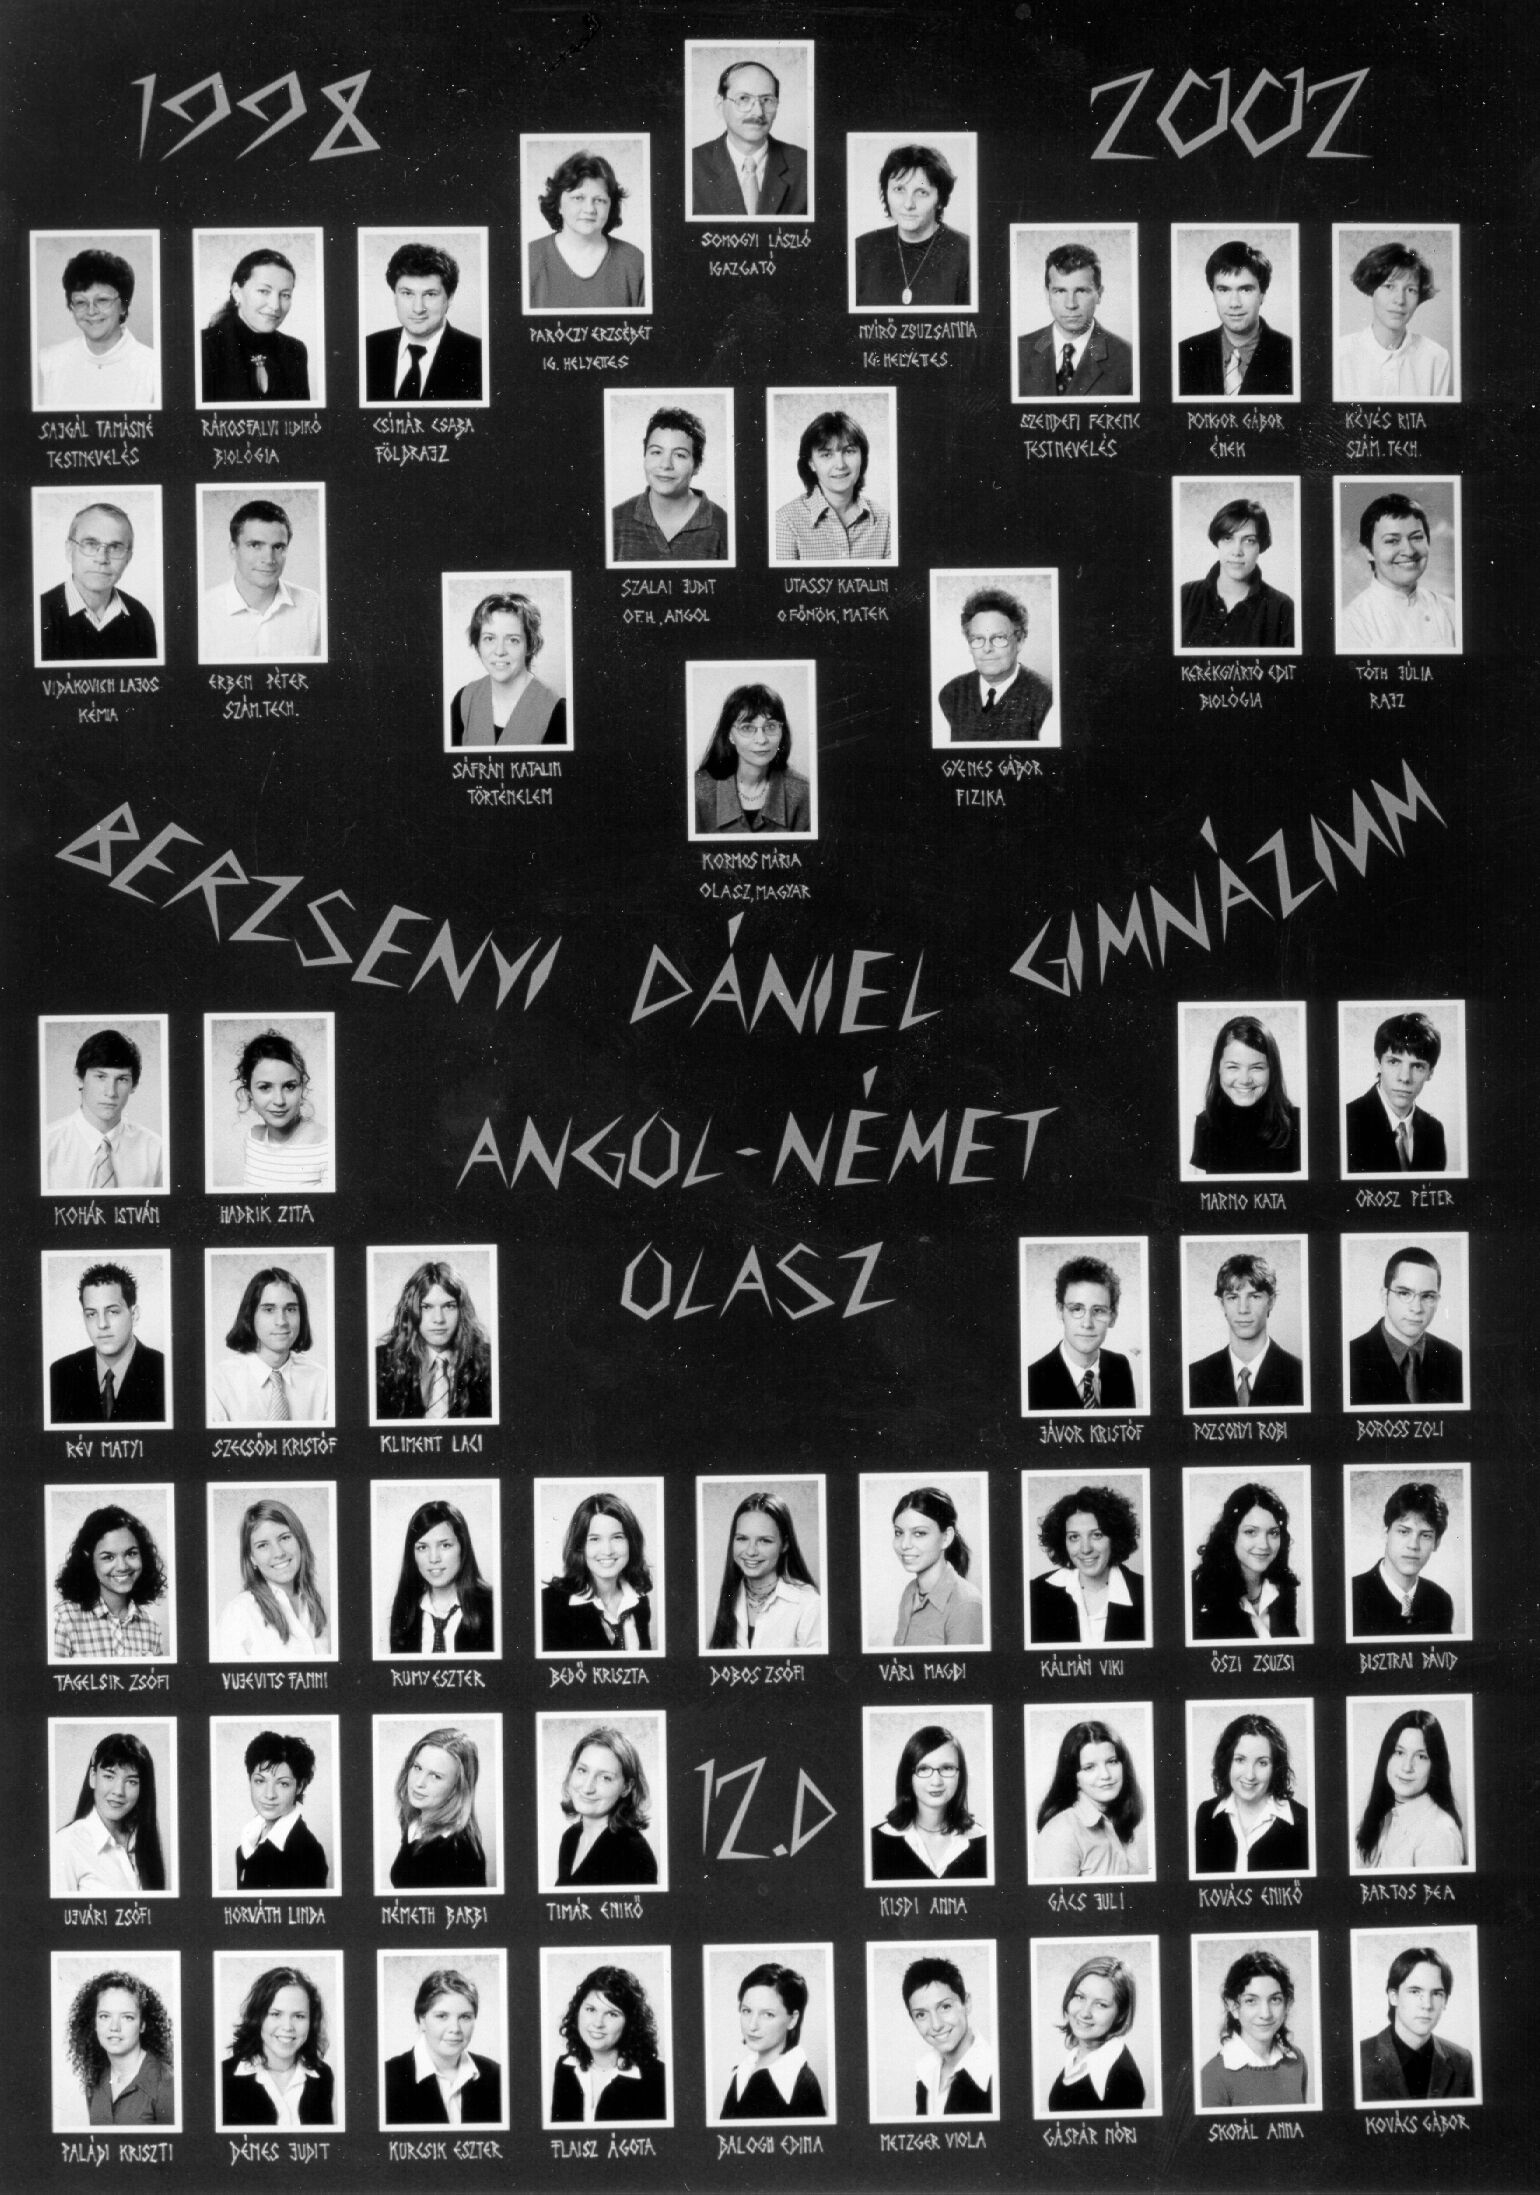 1998
2002
SOMOGYI LÁSZLÓ
IGAZGATÓ
PARÓCZY ERZSÉBET
IG. HELYETTES
NYÍRŐ ZSUZSANNA
IG. HELYETTES.
SAJGÁL TAMÁSNÉ
TESTNEVELÉS
RÁKOSFALVI ILDIKÓ
BIOLÓGIA
CSIMÁR CSABA
FÖLDRAJZ
SZENDEFI FERENC
TESTNEVELÉS
PONGOR GÁBOR
ÉNEK
KÉVÉS RITA
SZÁM. TECH.
SZALAI JUDIT
OF.H., ANGOL
UTASSY KATALIN
O.FŐNÖK, MATEK
VIDÁKOVICH LAJOS
KÉMIA
ERBEN PÉTER
SZÁM.TECH.
KERÉKGYÁRTÓ EDIT
BIOLÓGIA
TÓTH JÚLIA
RAJZ
SÁFRÁN KATALIN
TÖRTÉNELEM
GYENES GÁBOR
FIZIKA
KORMOS MÁRIA
OLASZ, MAGYAR
BERZSENYI DÁNIEL GIMNÁZIUM
ANGOL-NÉMET
OLASZ
KOHÁR ISTVÁN
HADRIK ZITA
MARNO KATA
OROSZ PÉTER
RÉV MATYI
SZECSŐDI KRISTÓF
KLIMENT LACI
JÁVOR KRISTÓF
POZSONYI ROBI
BOROSS ZOLI
TAGELSIR ZSÓFI
VUJEVITS FANNI
RUMY ESZTER
BEDŐ KRISZTA
DOBOS ZSÓFI
VÁRI MAGDI
KÁLMÁN VIKI
ŐSZI ZSUZSI
BISZTRAI DÁVID
12.D
UJVÁRI ZSÓFI
HORVÁTH LINDA
NÉMETH BARBI
TIMÁR ENIKŐ
KISDI ANNA
GÁCS JULI
KOVÁCS ENIKŐ
BARTOS BEA
PALÁDI KRISZTI
DÉMES JUDIT
KURCSIK ESZTER
FLAISZ ÁGOTA
BALOGH EDINA
METZGER VIOLA
GÁSPÁR NÓRI
SKOPÁL ANNA
KOVÁCS GÁBOR